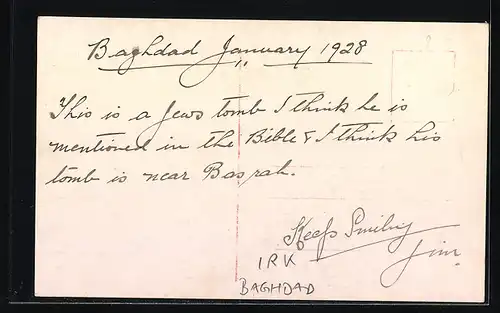 Baghdad January 1928
This is a Jews tomb I think he is
mentioned in the Bible & I think his
tomb is near Basrah.
Keep Smiling
Jim
IRK
BAGHDAD